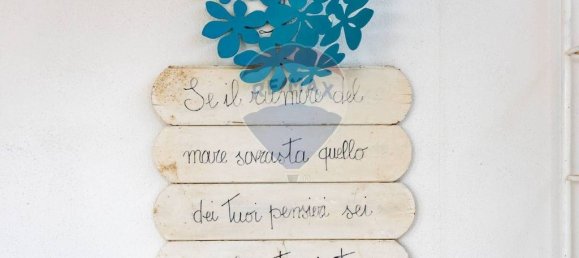 Se il rumore del
RE/MAX
mare sovrasta quello
dei tuoi pensieri sei